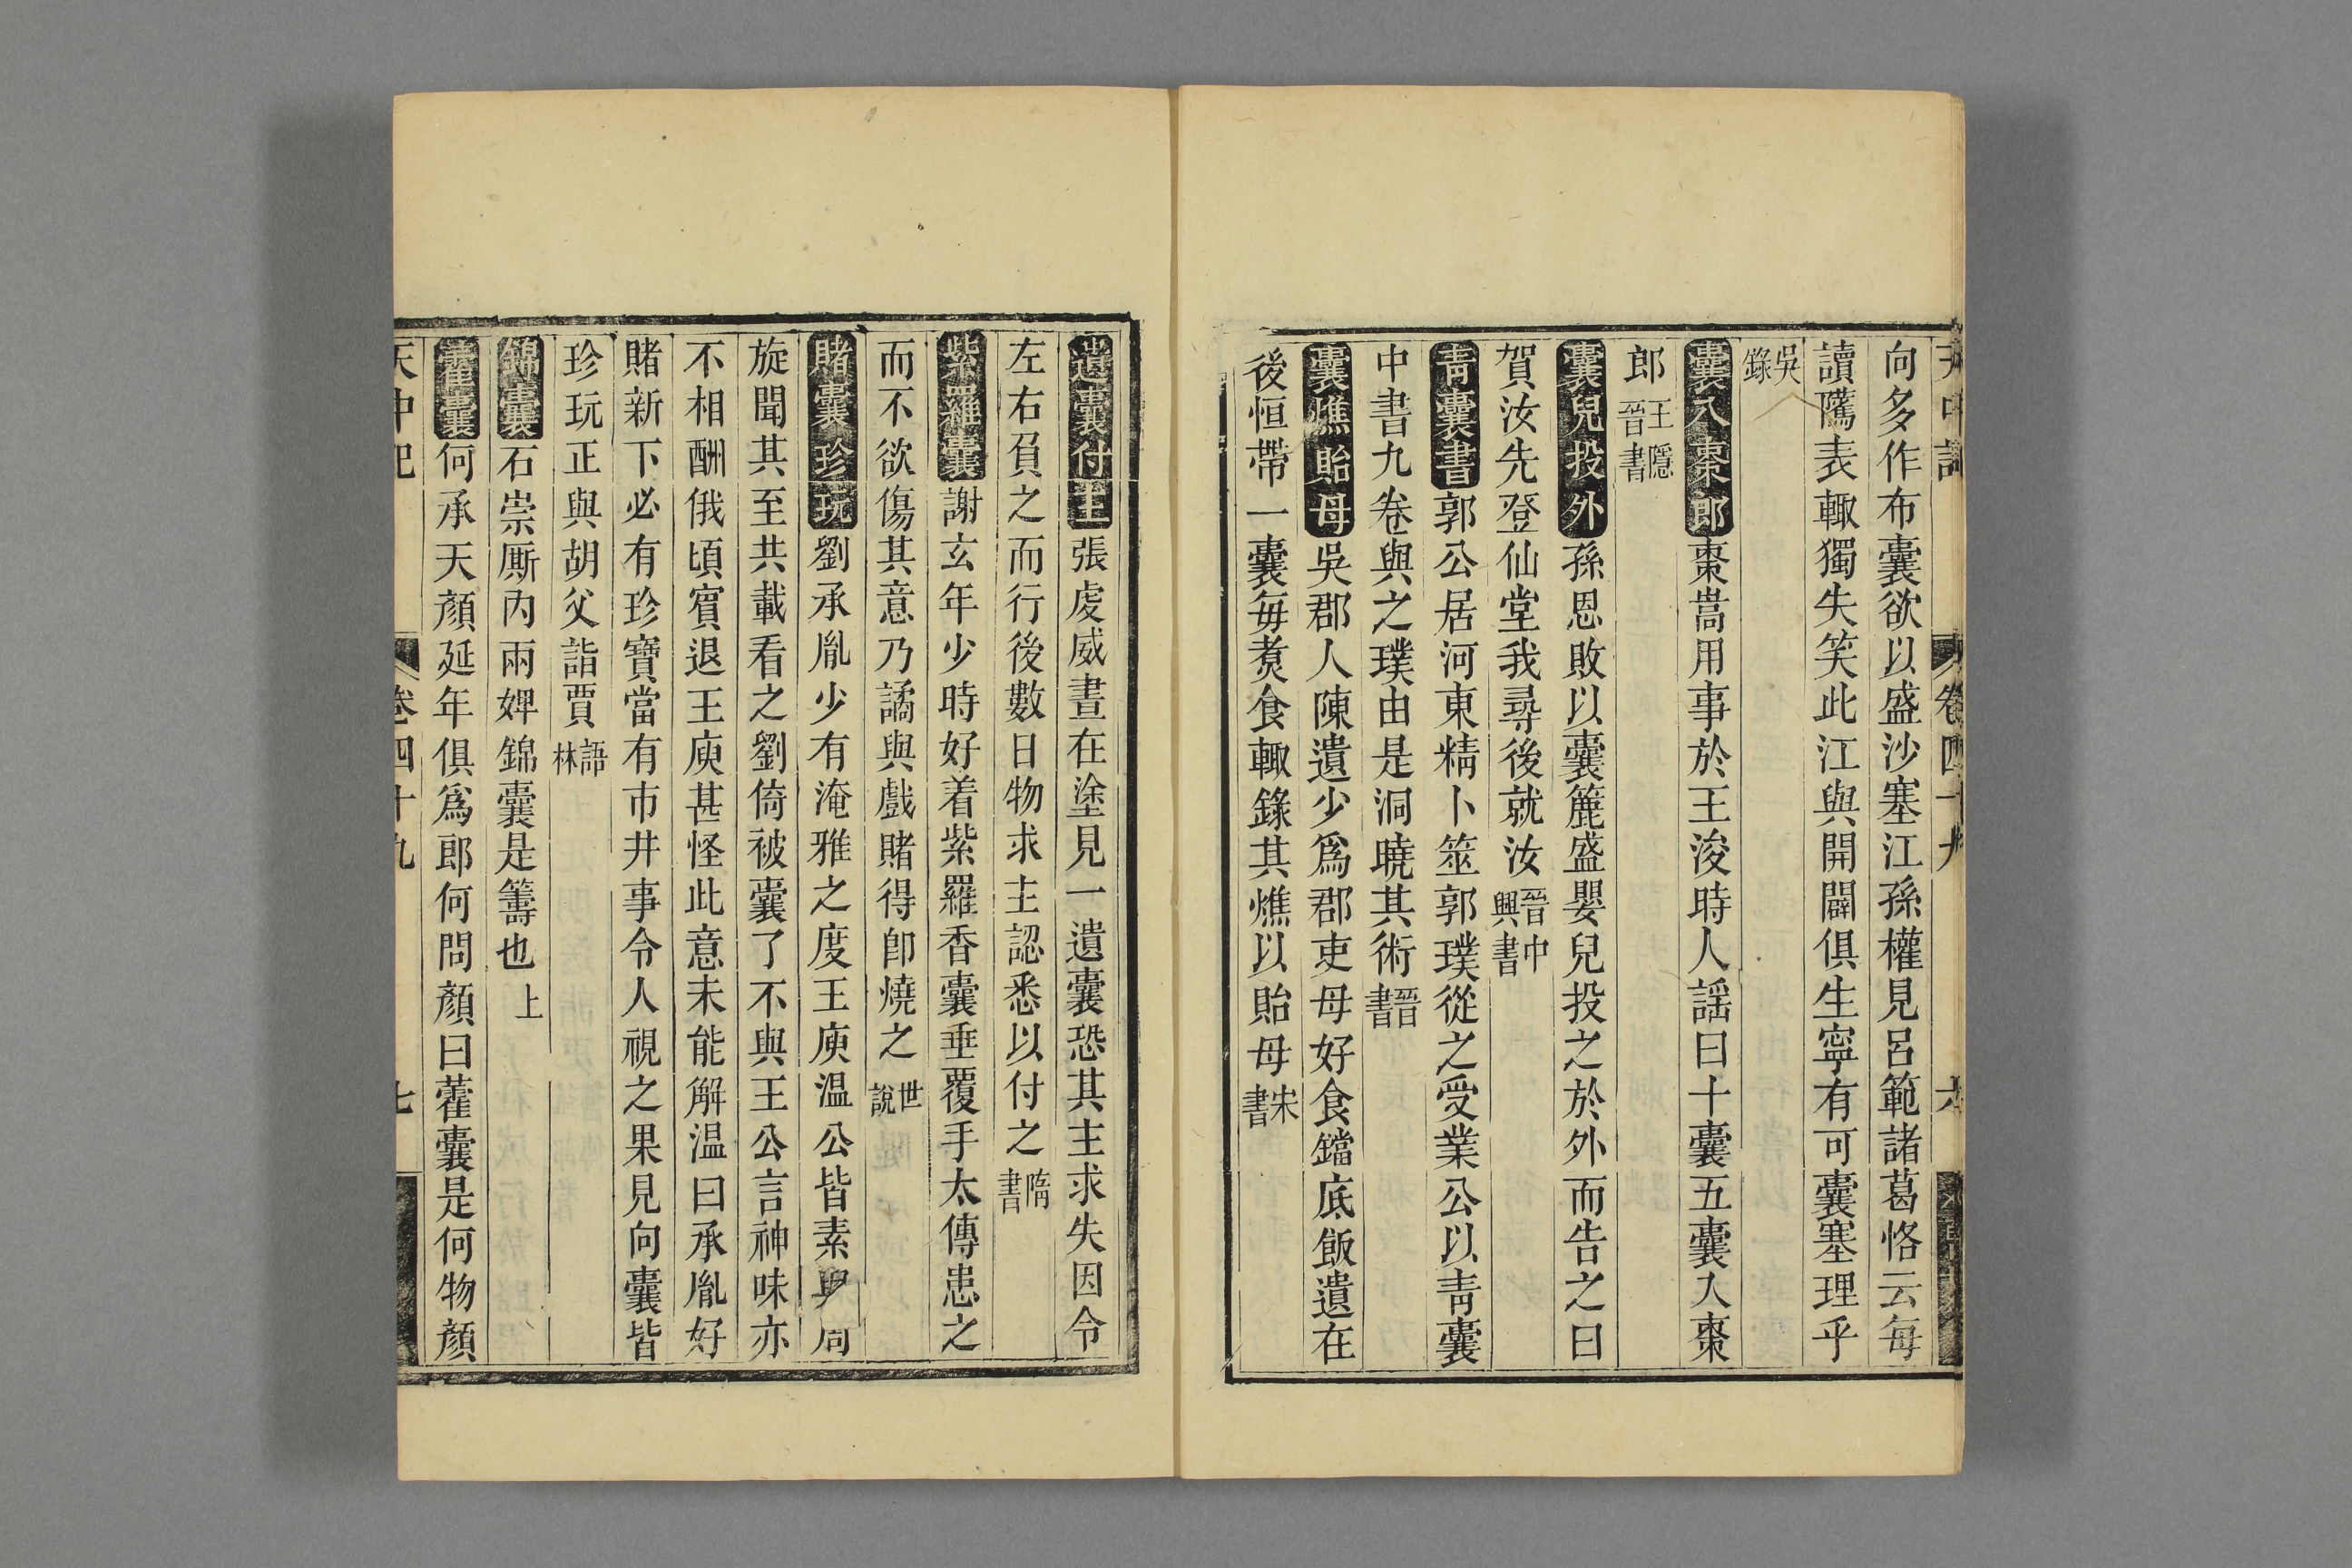 天中記 卷四十九 六
向多作布囊欲以盛沙塞江孫權見呂範諸葛恪云每
讀隲表輙獨失笑此江與開闢俱生寧有可囊塞理乎
吳錄
囊入棗郎棗嵩用事於王浚時人謡曰十囊五囊入棗
郎王隱晉書
囊兒投外孫恩敗以囊簏盛嬰兒投之於外而告之曰
賀汝先登仙堂我尋後就汝晉中興書
青囊書郭公居河東精卜筮郭璞從之受業公以青囊
中書九卷與之璞由是洞曉其術晉書
囊燋貽母吳郡人陳遺少爲郡吏母好食鐺底飯遺在
後恒帶一囊每煑食輙錄其燋以貽母宋書
遺囊付主張虔威晝在塗見一遺囊恐其主求失因令
左右負之而行後數日物求主認悉以付之隋書
紫羅囊謝玄年少時好着紫羅香囊垂覆手太傅患之
而不欲傷其意乃譎與戲賭得卽燒之世說
賭囊珍玩劉承胤少有淹雅之度王庾温公皆素與周
旋聞其至共載看之劉倚被囊了不與王公言神味亦
不相酬俄頃賓退王庾甚怪此意未能解温曰承胤好
賭新下必有珍寶當有市井事令人視之果見向囊皆
珍玩正與胡父詣賈語林
錦囊石崇厮内兩婢錦囊是籌也上
藿囊何承天顏延年俱爲郎何問顏曰藿囊是何物顏
天中記 卷四十九 七